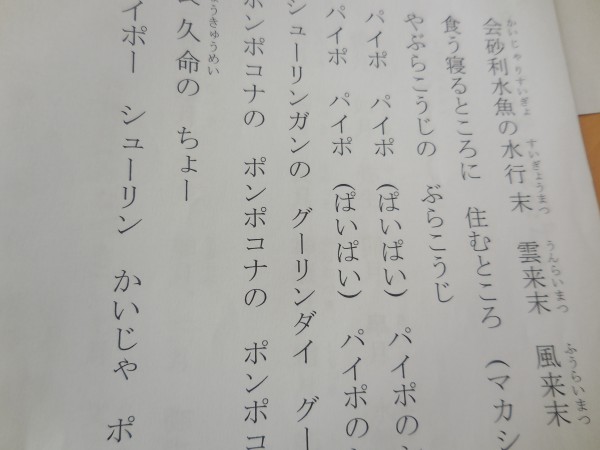 かいじゃりすいぎょ すいぎょうまつ うんらいまつ ふうらいまつ
会砂利水魚の水行末 雲来末 風来末
食う寝るところに 住むところ (マカシ
やぶらこうじの ぶらこうじ
パイポ パイポ (ぱいぱい) パイポの
パイポ パイポ (ぱいぱい) パイポの
シューリンガンの グーリンダイ グー
ポンポコナの ポンポコナの ポンポコ
うきゅうめい
久命の ちょー
イポー シューリン かいじゃ ポ